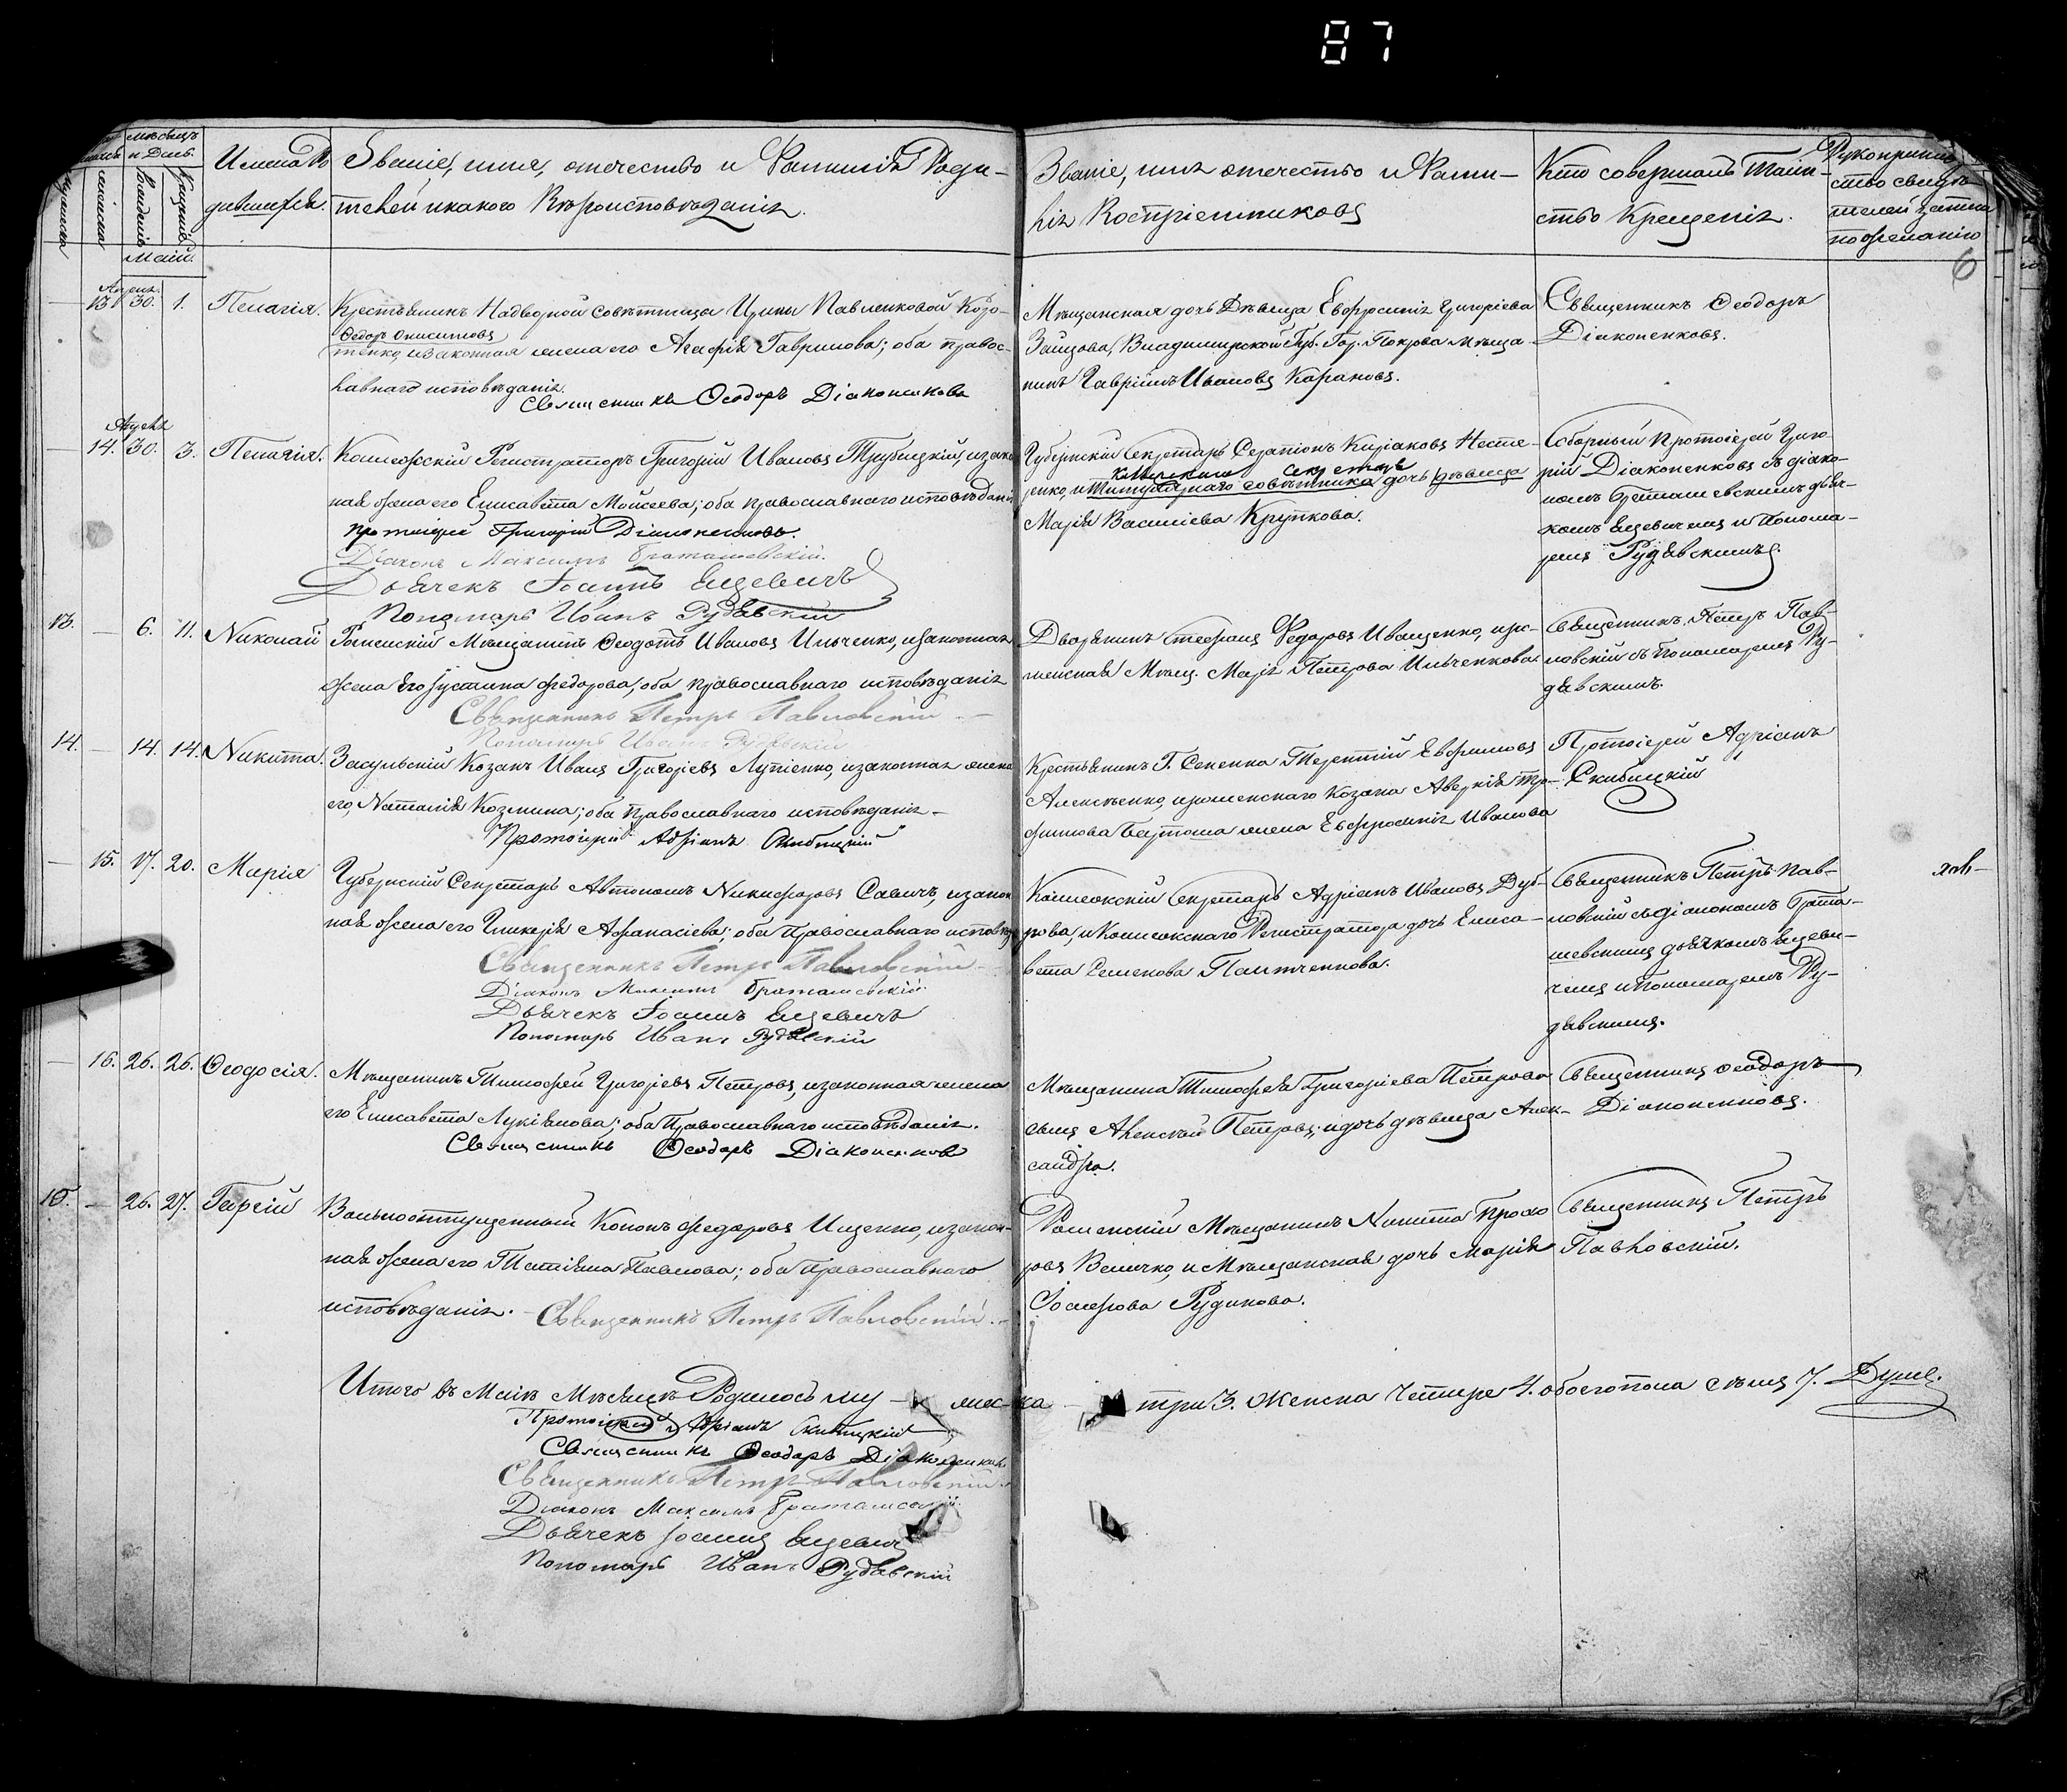 87
мѣсяцъ
и День.
мужеска
женска
Рожденія
Крещенія
Маій.
Имена Ро
дившихся.
Званіе, имя, отечество и Фамилія Роди-
телей и какого Вѣроисповѣданія.
Званіе, имя отечество и Фами-
лія Воспріемниковъ
Кто совершалъ Таин-
ство Крещенія.
Рукоприклад
ство свидѣ
телей записи
по желанію
6
Апрел.
— 13 30. 1. Пелагія.
Крестьянинъ Надворной совѣтницы Ирины Павленковой Коро-
Федоръ Онисимовъ
тенко, и законная жена его Агафія Гаврилова; оба правос-
лавнаго исповѣданія.
Священникъ Ѳеодоръ Діаконенковъ
Мѣщанская дочь Дѣвица Евфросинія Григоріева
Зайцова, Владимирской Губ. Гор. Покрова мѣща-
нинъ Гавріилъ Ивановъ Карановъ.
Священникъ Ѳеодоръ
Діаконенковъ.
Апрель
— 14. 30. 3. Пелагія.
Коллежскій Регистраторъ Григорій Ивановъ Трубицкій, и закон
ная жена его Елисавета Моѵсеева; оба православнаго исповѣданія
Протоіерей Григорій Діаконенковъ.
Діаконъ Максимъ Браташевскій.
Дьячекъ Іоаннъ Яцевичъ
Пономарь Иванъ Рудѣвскій
Губернскій Секретарь Серапіонъ Киріаковъ Несте-
Коллежскаго Секретаря
ренко, и Титулярнаго совѣтника дочь дѣвица
Марія Василіева Крупкова.
Соборный Протоіерей Григо
рій Діаконенковъ съ діако-
номъ Браташевскимъ дьяч-
комъ Яцевичемъ и Понома-
ремъ Рудѣвскимъ.
13. — 6. 11. Николай
Роменскій Мѣщанинъ Ѳеодотъ Ивановъ Ильченко, и законная
жена его Іустина Федорова, оба православнаго исповѣданія
Священникъ Петръ Павловскій
Пономарь Иванъ Рудѣвскій
Дворянинъ Стефанъ Федоровъ Иващенко, и ро-
менская Мѣщ. Марія Петрова Ильченкова.
Священникъ Петръ Пав-
ловскій съ Пономаремъ Ру-
дѣвскимъ.
14. — 14. 14. Никита.
Засульскій Козакъ Иванъ Григоріевъ Лупіенко, и законная жена
его, Наталія Козмина; оба Православнаго исповѣданія —
Протоіерей Адріанъ Скибицкій
Крестьянинъ Г. Сененка Терентій Евфимовъ
Алексѣенко, и роменскаго Козака Аверкія Тро-
фимова Бартоша жена Евфросинія Иванова
Протоіерей Адріанъ
Скибицкій
— 15. 17. 20. Марія
Губернскій Секретарь Автономъ Никифоровъ Савичъ, и закон
ная жена его Гликерія Афанасіева; оба Православнаго исповѣд
Священникъ Петръ Павловскій
Діаконъ Максимъ Браташевскій
Дьячекъ Іоаннъ Яцевичъ
Пономарь Иванъ Рудѣвскій
Коллежскій Секретарь Адріанъ Ивановъ Дуб-
рова, и Коллежскаго Регистратора дочь Елиса-
вета Семенова Пантченкова.
Священникъ Петръ Пав-
ловскій съ діакономъ Брата-
шевскимъ дьячкомъ Яцеви-
чемъ и Пономаремъ Ру-
дѣвскимъ.
— 16. 26. 26. Ѳеодосія.
Мѣщанинъ Тимофей Григоріевъ Петровъ, и законная жена
его Елисавета Лукіянова; оба Православнаго исповѣданія.
Священникъ Ѳеодоръ Діаконенковъ
Мѣщанина Тимофея Григоріева Петрова
сынъ Алексѣй Петровъ, и дочь дѣвица Алек-
сандра.
Священникъ Ѳеодоръ
Діаконенковъ.
15. — 26. 27. Георгій
Вольноотпущенный Кононъ Федоровъ Ищенко, и закон-
ная жена его Татіяна Павлова; оба Православнаго
исповѣданія. — Священникъ Петръ Павловскій.
Роменскій Мѣщанинъ Никита Прохо
ровъ Величко, и Мѣщанская дочь Марія
Іосифова Рудикова.
Священникъ Петръ
Павловскій.
Итого въ Маіѣ Мѣсяцѣ Родилось му— жес-ка — три 3. Женска Четыре 4. обоего пола съимъ 7. Душъ.
Протоіерей Адріанъ Скибицкій
Священникъ Ѳеодоръ Діаконенковъ
Священникъ Петръ Павловскій
Діаконъ Максимъ Браташевскій
Дьячекъ Іоаннъ Яцевичъ
Пономарь Иванъ Рудѣвскій